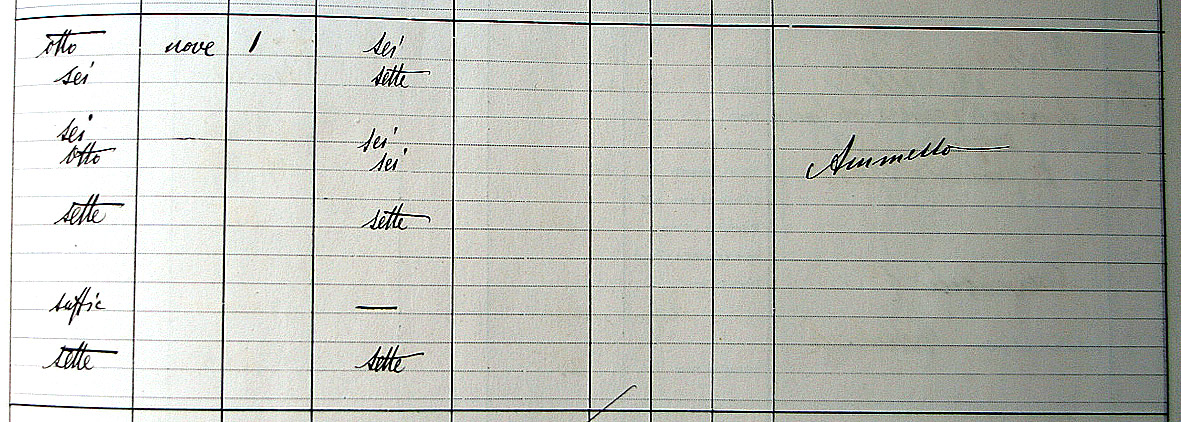 otto nove 1 sei
sei sette
sei sei
otto sei
Ammesso
sette sette
suffic —
sette sette